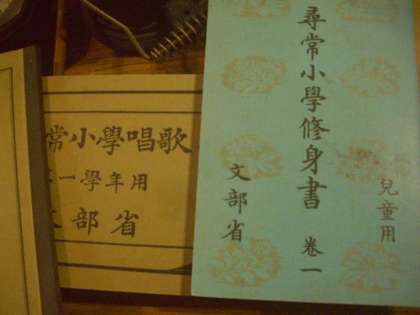 兒童用
尋常小學修身書 卷一
文部省
常小學唱歌
一學年用
部省